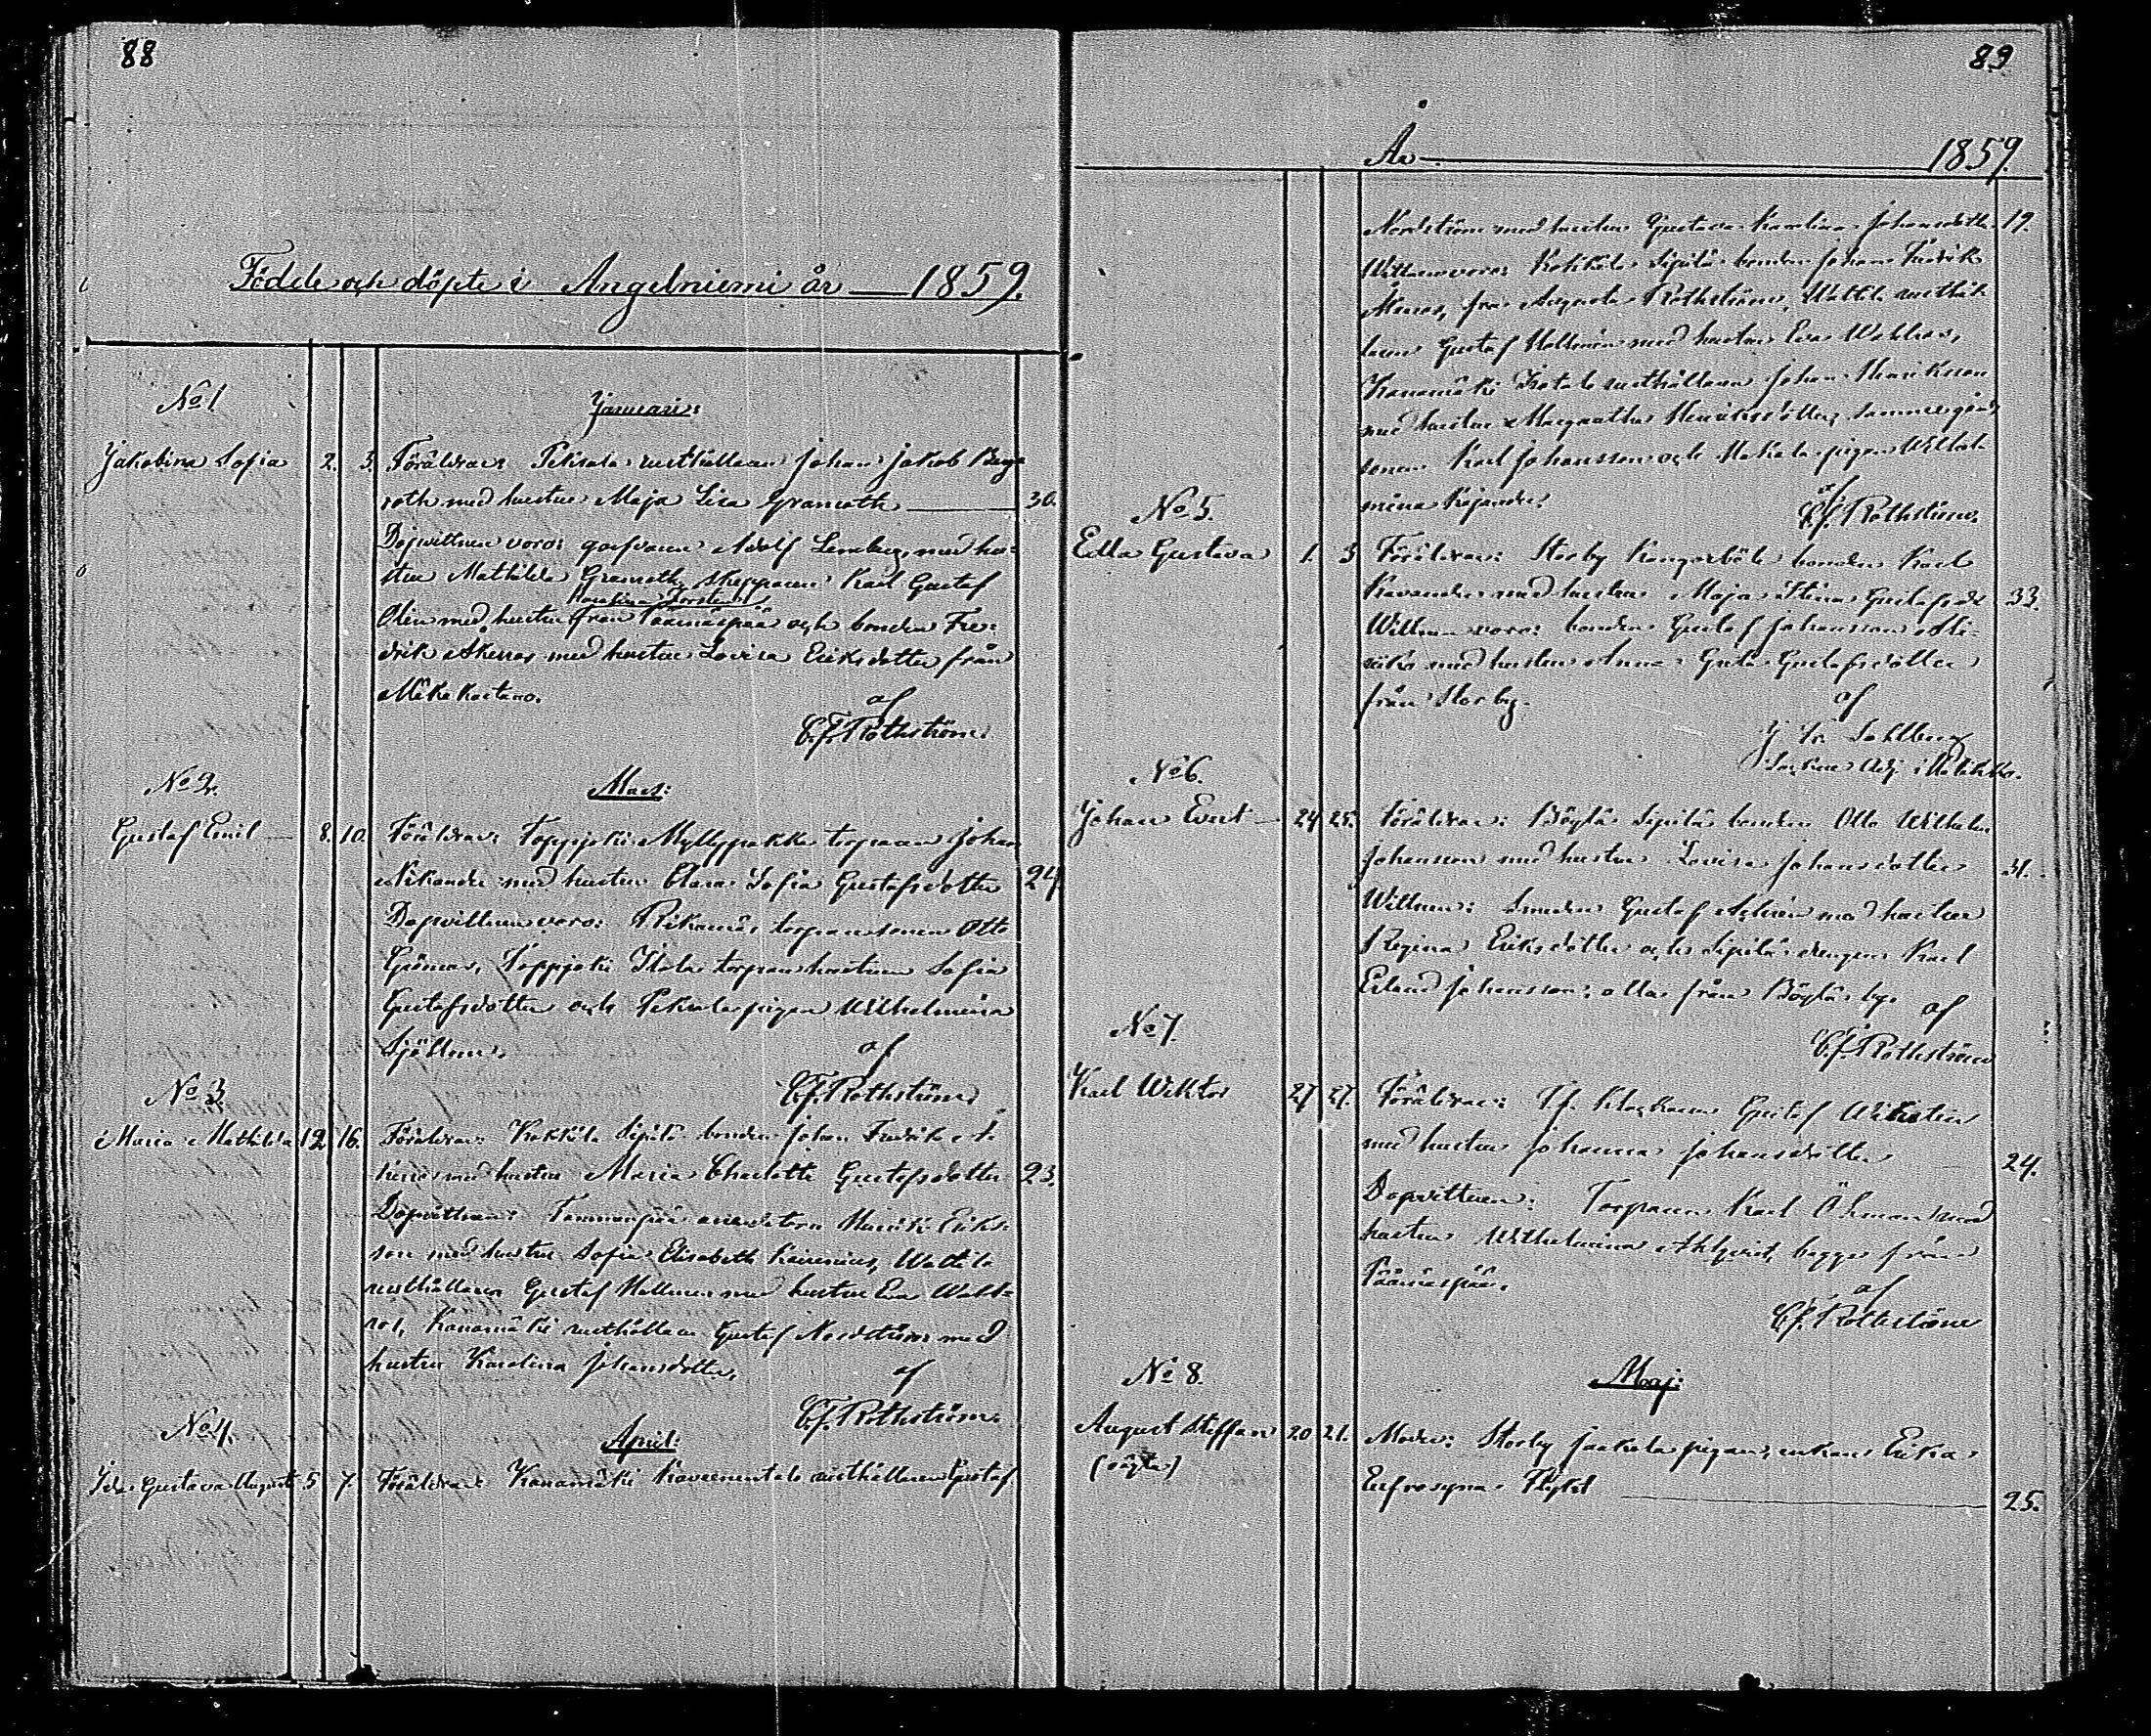 88
Födde och döpte i Angelniemi år 1859.
No 1
Januari:
Jakobina Sofia 2. 3. Föräldrar: Peksala rusthållaren Johan Jakob
roth med hustru Maja Lisa Granroth 30.
Dopvittnen voro: Adolf Lemberg, med hu-
stru Mathilda Granroth, skepparen Karl Gustaf
Olin med hustru från Päärnäspää och bonden Fre-
drik Akerros med hustru Lovisa Eriksdotter från
af
C.F. Rothström.
No 2.
Mars:
Gustaf Emil 8. 10. Föräldrar: Toppjoki Myllypakka torparen Johan
Nikander med hustru Clara Sofia Gustafsdotter 24.
Dopvittnen voro: torparesonen Otto
Toppjoki Itala torparehustrun Sofia
Gustafsdotter och Peksala pigan Wilhelmina
af
C.F. Rothström.
No 3.
Maria Mathilda 12. 16. Föräldrar: Kokkila Sipilä bonden Johan Fredrik
med hustru Maria Charlotta Gustafsdotter 23.
Dopvittnen: Henrik Eriks-
son med hustru Sofia Elisabeth Wättilä
rusthållaren Gustaf Hallmen med hustru Eva Wahl-
ros, Kanamäki rusthållaren Gustaf Nordström med
hustru Karolina Johansdotter.
af
C.F. Rothström.
No 4.
April:
Ida Gustava Augusta 5 7. Föräldrar: Kanamäki rusthållaren Gustaf
89
År 1859.
Nordström med hustru Gustava Karolina Johansdotter 19.
Wittnen voro: Kokkila Sipilä bonden Johan Fredrik
fru Augusta Rothström, Wättilä rusthål-
laren Gustaf Hallmen med hustru Eva Wahlros,
Kanamäki Isotalo rusthållaren Johan Henriksson
med hustru Margaretha Henriksdotter,
sonen Karl Johansson och pigan Wilhel-
mina
af
C.F. Rothström.
No 5.
Edla Gustava 1. 3 Föräldrar: Storby Kangarböle bonden Karl
med hustru Maja Stina Gustafsdr 33.
Wittnen voro: bonden Gustaf Johansson
med hustru Anna Greta Gustafsdotter
från Storby.
af
J. Fr. Sahlberg
Sockne Adj. i Halikko.
No 6.
Johan Evert 24 25. Föräldrar: Böylä Sipilä bonden Otto Wilhelm
Johansson med hustru Lovisa Johansdotter 31.
Wittnen: Smeden Gustaf med hustru
Regina Eriksdotter och Sipilä drengen Karl
Erland Johansson; alla från Böylä by.
af
C.F. Rothström
No 7.
Karl Wiktor 27 27. Föräldrar: T.f. Klockaren Gustaf
med hustru Johanna Johansdotter 24.
Dopvittnen: Torparen Karl Öhman med
hustru Wilhelmina Ahlqvist, begge från
Päärnäspää.
af
C.F. Rothström
No 8.
Maj:
August Steffan 20 21. Moder: Storby Jaakola pigan, enkan Erika
(oägta) Eufrosyna Flykt 25.